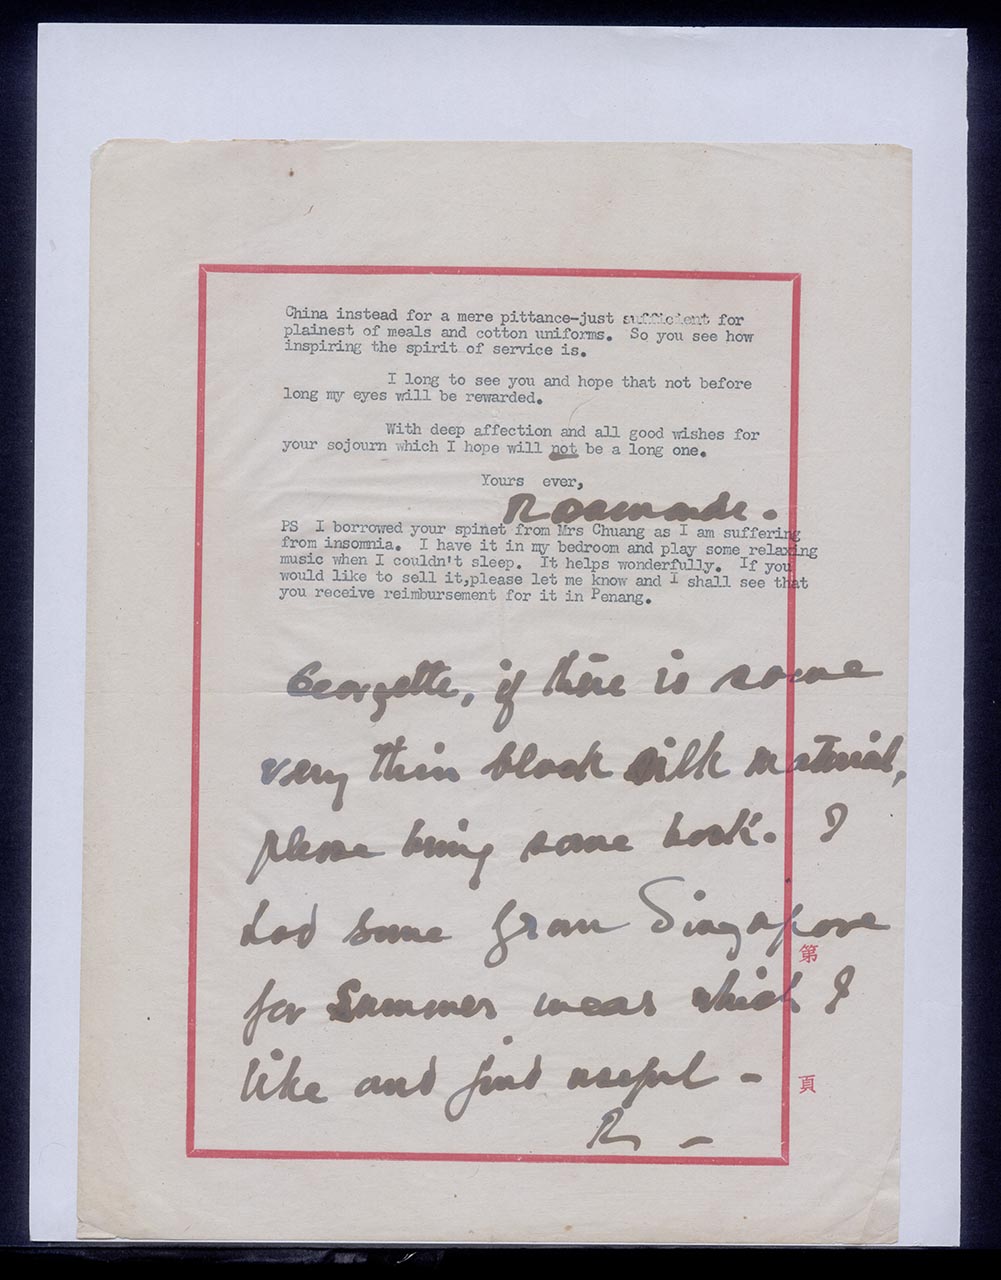 China instead for a mere pittance-just sufficient for
plainest of meals and cotton uniforms. So you see how
inspiring the spirit of service is.
I long to see you and hope that not before
long my eyes will be rewarded.
With deep affection and all good wishes for
your sojourn which I hope will not be a long one.
Yours ever,
Rosamonde.
PS I borrowed your spinet from Mrs Chuang as I am suffering
from insomnia. I have it in my bedroom and play some relaxing
music when I couldn't sleep. It helps wonderfully. If you
would like to sell it,please let me know and I shall see that
you receive reimbursement for it in Penang.
Georgette, if there is some
very thin black silk material,
please bring some back. I
had some from Singapore
第
for summer wear which I
like and find useful -
頁
R -